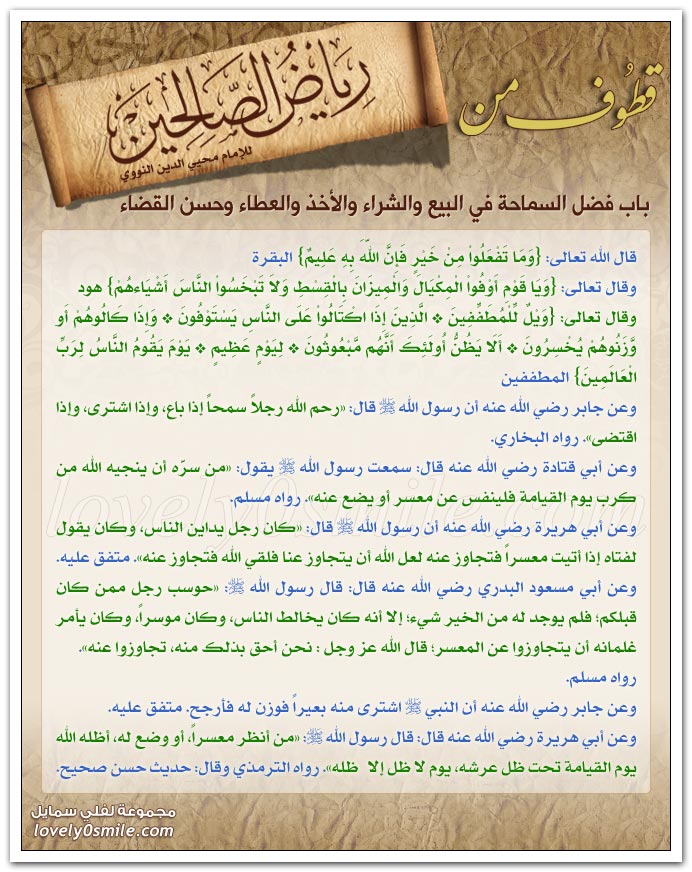 قطوف من
رياض الصالحين
للإمام محيي الدين النووي
باب فضل السماحة في البيع والشراء والأخذ والعطاء وحسن القضاء
قال الله تعالى: {وَمَا تَفْعَلُواْ مِنْ خَيْرٍ فَإِنَّ اللَّهَ بِهِ عَلِيمٌ} البقرة
وقال تعالى: {وَيَا قَوْمِ أَوْفُواْ الْمِكْيَالَ وَالْمِيزَانَ بِالْقِسْطِ وَلَا تَبْخَسُواْ النَّاسَ أَشْيَاءهُمْ} هود
وقال تعالى: {وَيْلٌ لِّلْمُطَفِّفِينَ ❖ الَّذِينَ إِذَا اكْتَالُواْ عَلَى النَّاسِ يَسْتَوْفُونَ ❖ وَإِذَا كَالُوهُمْ أَو
وَّزَنُوهُمْ يُخْسِرُونَ ❖ أَلَا يَظُنُّ أُولَئِكَ أَنَّهُم مَّبْعُوثُونَ ❖ لِيَوْمٍ عَظِيمٍ ❖ يَوْمَ يَقُومُ النَّاسُ لِرَبِّ
الْعَالَمِينَ} المطففين
وعن جابر رضي الله عنه أن رسول الله ﷺ قال: «رحم الله رجلاً سمحاً إذا باع، وإذا اشترى، وإذا
اقتضى». رواه البخاري.
وعن أبي قتادة رضي الله عنه قال: سمعت رسول الله ﷺ يقول: «من سرّه أن ينجيه الله من
كرب يوم القيامة فلينفس عن معسر أو يضع عنه». رواه مسلم.
وعن أبي هريرة رضي الله عنه أن رسول الله ﷺ قال: «كان رجل يداين الناس، وكان يقول
لفتاه إذا أتيت معسراً فتجاوز عنه لعل الله أن يتجاوز عنا فلقي الله فتجاوز عنه». متفق عليه.
وعن أبي مسعود البدري رضي الله عنه قال: قال رسول الله ﷺ: «حوسب رجل ممن كان
قبلكم؛ فلم يوجد له من الخير شيء؛ إلا أنه كان يخالط الناس، وكان موسراً، وكان يأمر
غلمانه أن يتجاوزوا عن المعسر؛ قال الله عز وجل : نحن أحق بذلك منه، تجاوزوا عنه».
رواه مسلم.
وعن جابر رضي الله عنه أن النبي ﷺ اشترى منه بعيراً فوزن له فأرجح. متفق عليه.
وعن أبي هريرة رضي الله عنه قال: قال رسول الله ﷺ: «من أنظر معسراً، أو وضع له، أظله الله
يوم القيامة تحت ظل عرشه، يوم لا ظل إلا ظله». رواه الترمذي وقال: حديث حسن صحيح.
مجموعة لفلي سمايل
lovely0smile.com